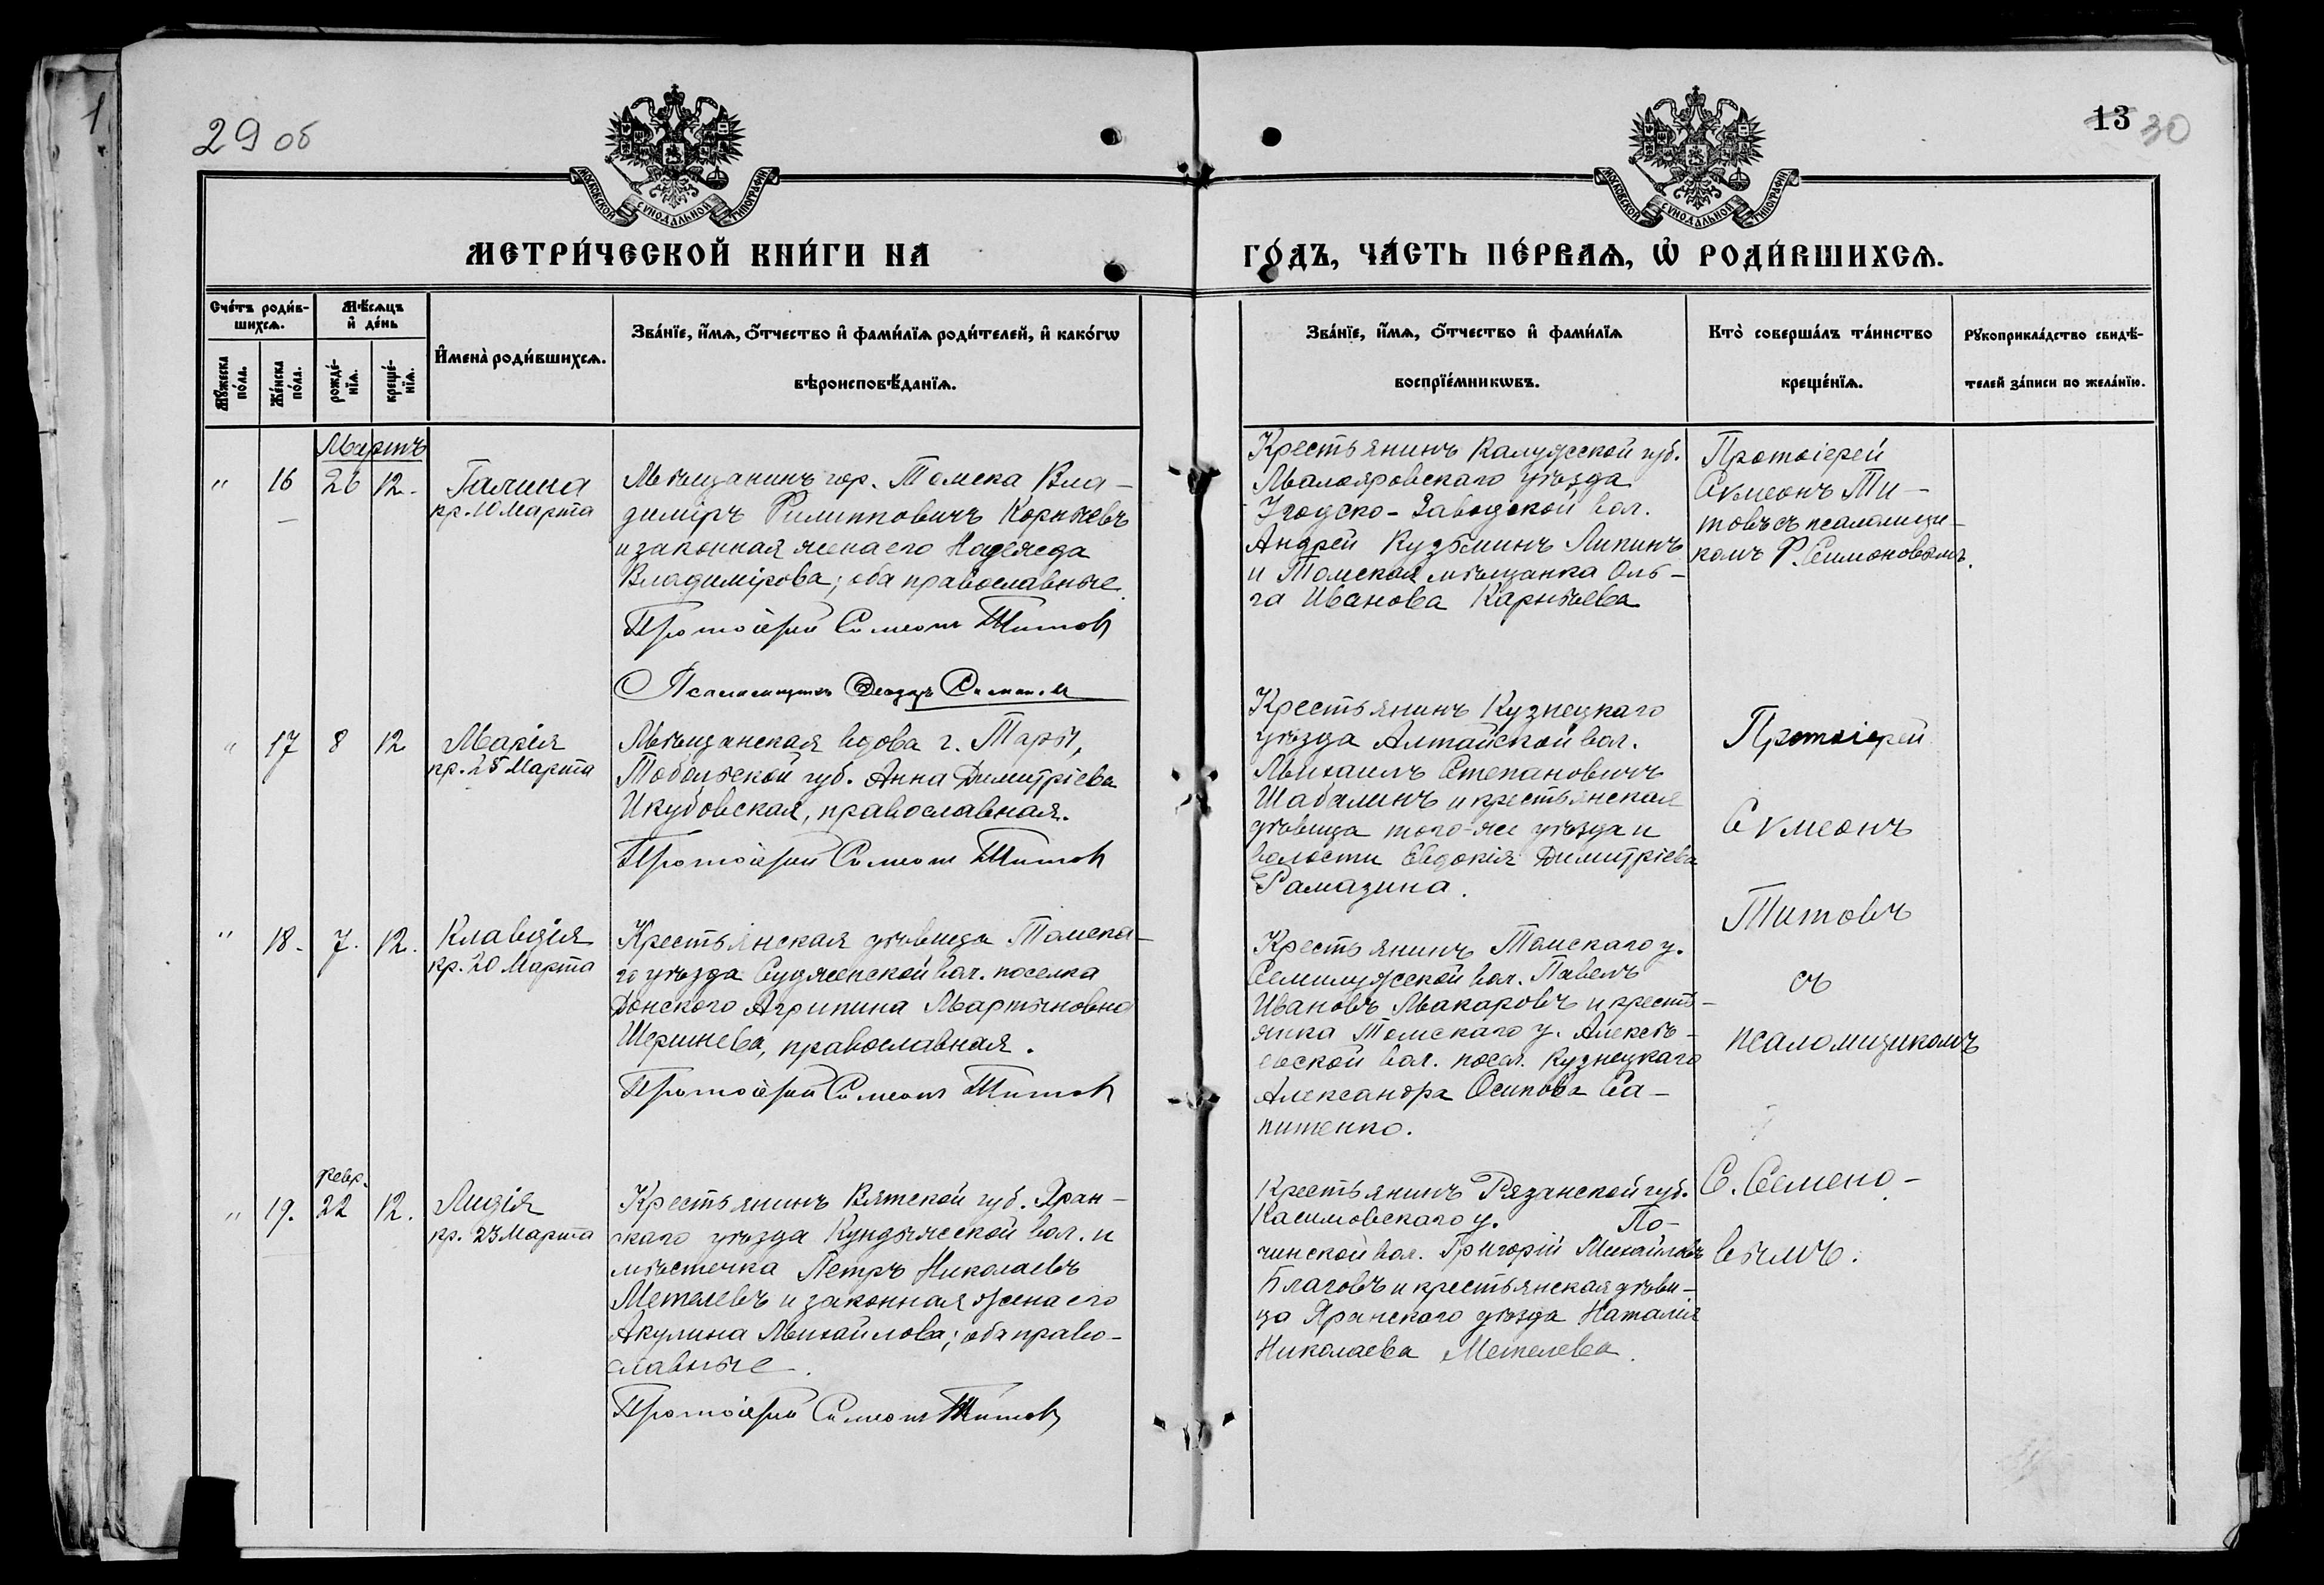 1
29 об
13 30
МОСКОВСКОЙ СѴНОДАЛЬНОЙ ТИПОГРАФІИ
МОСКОВСКОЙ СѴНОДАЛЬНОЙ ТИПОГРАФІИ
МЕТРИ́ЧЕСКОЙ КНИ́ГИ НА
ГО́ДЪ, ЧА́СТЬ ПЕ́РВАѦ, Ѡ҆ РОДИ́ВШИХСѦ.
Сче́тъ роди́в-
шихсѧ.
Мѣ́сѧцъ
и҆ де́нь
Мꙋ́жеска
по́ла.
Же́нска
по́ла.
рожде́-
нїѧ.
креще́-
нїѧ.
И҆мена̀ роди́вшихсѧ.
Зва́нїе, и҆́мѧ, ѻ҆́тчество и҆ фами́лїѧ роди́телей, и҆ како́гѡ
вѣроисповѣ́данїѧ.
Зва́нїе, и҆́мѧ, ѻ҆́тчество и҆ фами́лїѧ
воспрїе́мникѡвъ.
Кто̀ соверша́лъ та́инство
креще́нїѧ.
Рꙋкоприкла́дство свидѣ́-
телей за́писи по жела́нїю.
Мартъ
" 16 26 12.
Галина
кр. 10 Марта
Мѣщанинъ гор. Томска Вла-
димiръ Филипповичъ Корнѣевъ
и законная жена его Надежда
Владимiрова; оба православные.
Протоiерей Симеонъ Титовъ
Псаломщикъ Ѳеодоръ
Крестьянинъ Калужской губ.
Малояровскаго уѣзда
Угодско-Заводской вол.
Андрей Кузьминъ Липинъ
и Томская мѣщанка Оль-
га Иванова Карнѣева
Протоiерей
Сѵмеонъ Ти-
товъ съ псаломщи-
комъ Ѳ. Симоновымъ.
" 17 8 12
Марiя
кр. 25 Марта
Мѣщанская вдова г. Тары,
Тобольской губ. Анна Димитрiева
Икубовская, православная.
Протоiерей Симеонъ Титовъ
Крестьянинъ Кузнецкаго
уѣзда Алтайской вол.
Михаилъ Степановичъ
Шабалинъ и крестьянская
дѣвица того-же уѣзда и
волости Евдокiя Димитрiева
Рамазина.
Протоiерей
Сѵмеонъ
Титовъ
съ
псаломщикомъ
" 18. 7. 12.
Клавдiя
кр. 20 Марта
Крестьянская дѣвица Томска-
го уѣзда Судженской вол. поселка
Донского Агрипина Мартыновна
Шершнева, православная.
Протоiерей Симеонъ Титовъ
Крестьянинъ Томскаго у.
Семилужской вол. Павелъ
Ивановъ Макаровъ и кресть-
янка Томскаго у. Алексѣ-
евской вол. посел. Кузнецкаго
Александра Осипова Са-
питенко.
февр.
" 19. 22 12.
Лидiя
кр. 23 Марта
Крестьянинъ Вятской губ. Яран-
скаго уѣзда Кундыжской вол. и
мѣстечка Петръ Николаевъ
Метелевъ и законная жена его
Акулина Михайлова; оба право-
славные.
Протоiерей Симеонъ Титовъ
Крестьянинъ Рязанской губ.
Касимовскаго у. По-
чинской вол. Григорiй Михайловъ
Благовъ и крестьянская дѣви-
ца Яранскаго уѣзда Наталiя
Николаева Метелева.
С. Семено-
вымъ.